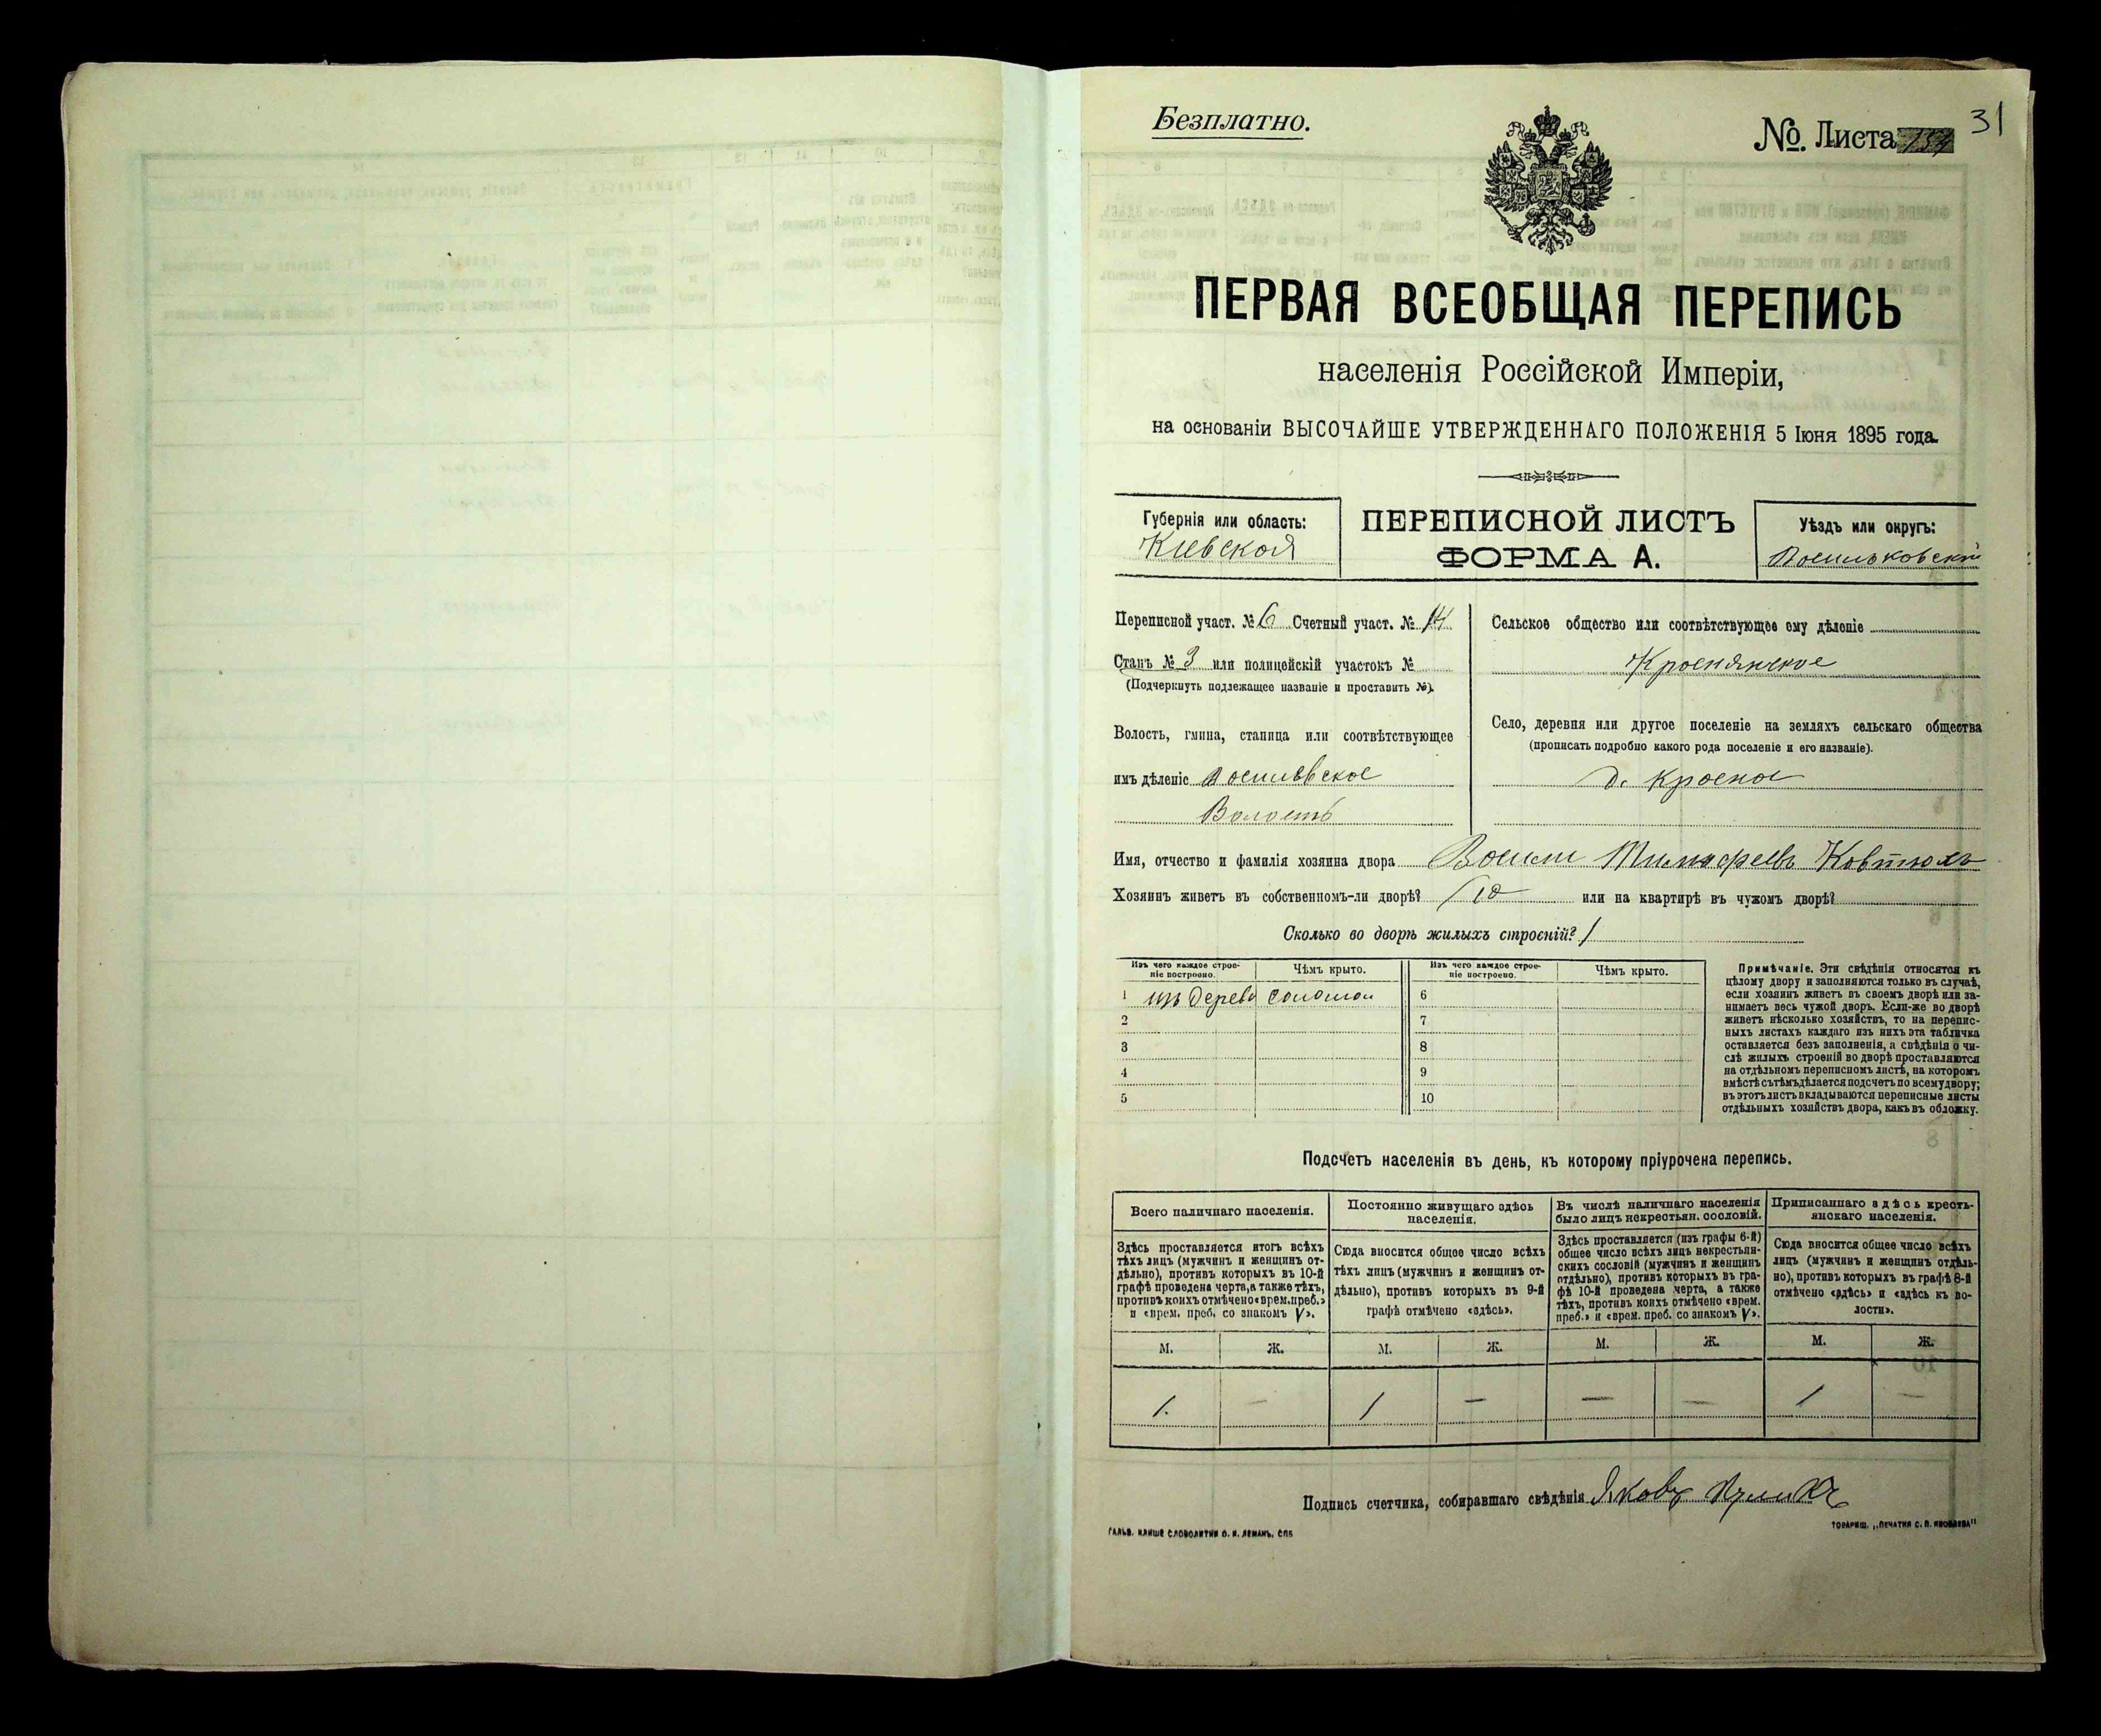 31
Безплатно.
№. Листа
ПЕРВАЯ ВСЕОБЩАЯ ПЕРЕПИСЬ
населенія Россійской Имперіи,
на основаніи ВЫСОЧАЙШЕ УТВЕРЖДЕННАГО ПОЛОЖЕНІЯ 5 Іюня 1895 года.
Губернія или область:
Кіевская
ПЕРЕПИСНОЙ ЛИСТЪ
ФОРМА А.
Уѣздъ или округъ:
Васильковскій
Переписной участ. № 6 Счетный участ. № 14
Станъ № 3 или полицейскій участокъ №
(Подчеркнуть подлежащее названіе и проставить №).
Волость, гмина, станица или соотвѣтствующее
имъ дѣленіе
Волость
Сельское общество или соотвѣтствующее ему дѣленіе
Краснянское
Село, деревня или другое поселеніе на земляхъ сельскаго общества
(прописать подробно какого рода поселеніе и его названіе).
д. Красное
Имя, отчество и фамилія хозяина двора
Хозяинъ живетъ въ собственномъ-ли дворѣ? или на квартирѣ въ чужомъ дворѣ?
Сколько во дворѣ жилыхъ строеній? 1
Изъ чего каждое строе-
ніе построено.
Чѣмъ крыто.
Изъ чего каждое строе-
ніе построено.
Чѣмъ крыто.
1 изъ дерева соломой 6
2 7
3 8
4 9
5 10
Примѣчаніе. Эти свѣдѣнія относятся къ
цѣлому двору и заполняются только въ случаѣ,
если хозяинъ живетъ въ своемъ дворѣ или за-
нимаетъ весь чужой дворъ. Если-же во дворѣ
живетъ нѣсколько хозяйствъ, то на перепис-
ныхъ листахъ каждаго изъ нихъ эта табличка
оставляется безъ заполненія, а свѣдѣнія о чи-
слѣ жилыхъ строеній во дворѣ проставляются
на отдѣльномъ переписномъ листѣ, на которомъ
вмѣстѣ съ тѣмъ дѣлается подсчетъ по всему двору;
въ этотъ листъ вкладываются переписные листы
отдѣльныхъ хозяйствъ двора, какъ въ обложку.
Подсчетъ населенія въ день, къ которому пріурочена перепись.
Всего наличнаго населенія.
Здѣсь проставляется итогъ всѣхъ
тѣхъ лицъ (мужчинъ и женщинъ от-
дѣльно), противъ которыхъ въ 10-й
графѣ проведена черта, а также тѣхъ,
противъ коихъ отмѣчено «врем. преб.»
и «врем. преб. со знакомъ V».
Постоянно живущаго здѣсь
населенія.
Сюда вносится общее число всѣхъ
тѣхъ лицъ (мужчинъ и женщинъ от-
дѣльно), противъ которыхъ въ 9-й
графѣ отмѣчено «здѣсь».
Въ числѣ наличнаго населенія
было лицъ некрестьян. сословій.
Здѣсь проставляется (изъ графы 6-й)
общее число всѣхъ лицъ некрестьян-
скихъ сословій (мужчинъ и женщинъ
отдѣльно), противъ которыхъ въ гра-
фѣ 10-й проведена черта, а также
тѣхъ, противъ коихъ отмѣчено «врем.
преб.» и «врем. преб. со знакомъ V».
Приписаннаго здѣсь кресть-
янскаго населенія.
Сюда вносится общее число всѣхъ
лицъ (мужчинъ и женщинъ отдѣль-
но), противъ которыхъ въ графѣ 8-й
отмѣчено «здѣсь» и «здѣсь къ во-
лости».
М. Ж. М. Ж. М. Ж. М. Ж.
1. — 1 — — — 1 —
Подпись счетчика, собиравшаго свѣдѣнія Яковъ
ГАЛЬВ. КЛИШЕ СЛОВОЛИТНИ О. И. ЛЕМАНЪ, СПБ
ТОВАРИЩ. „ПЕЧАТНЯ С. П. ЯКОВЛЕВА"